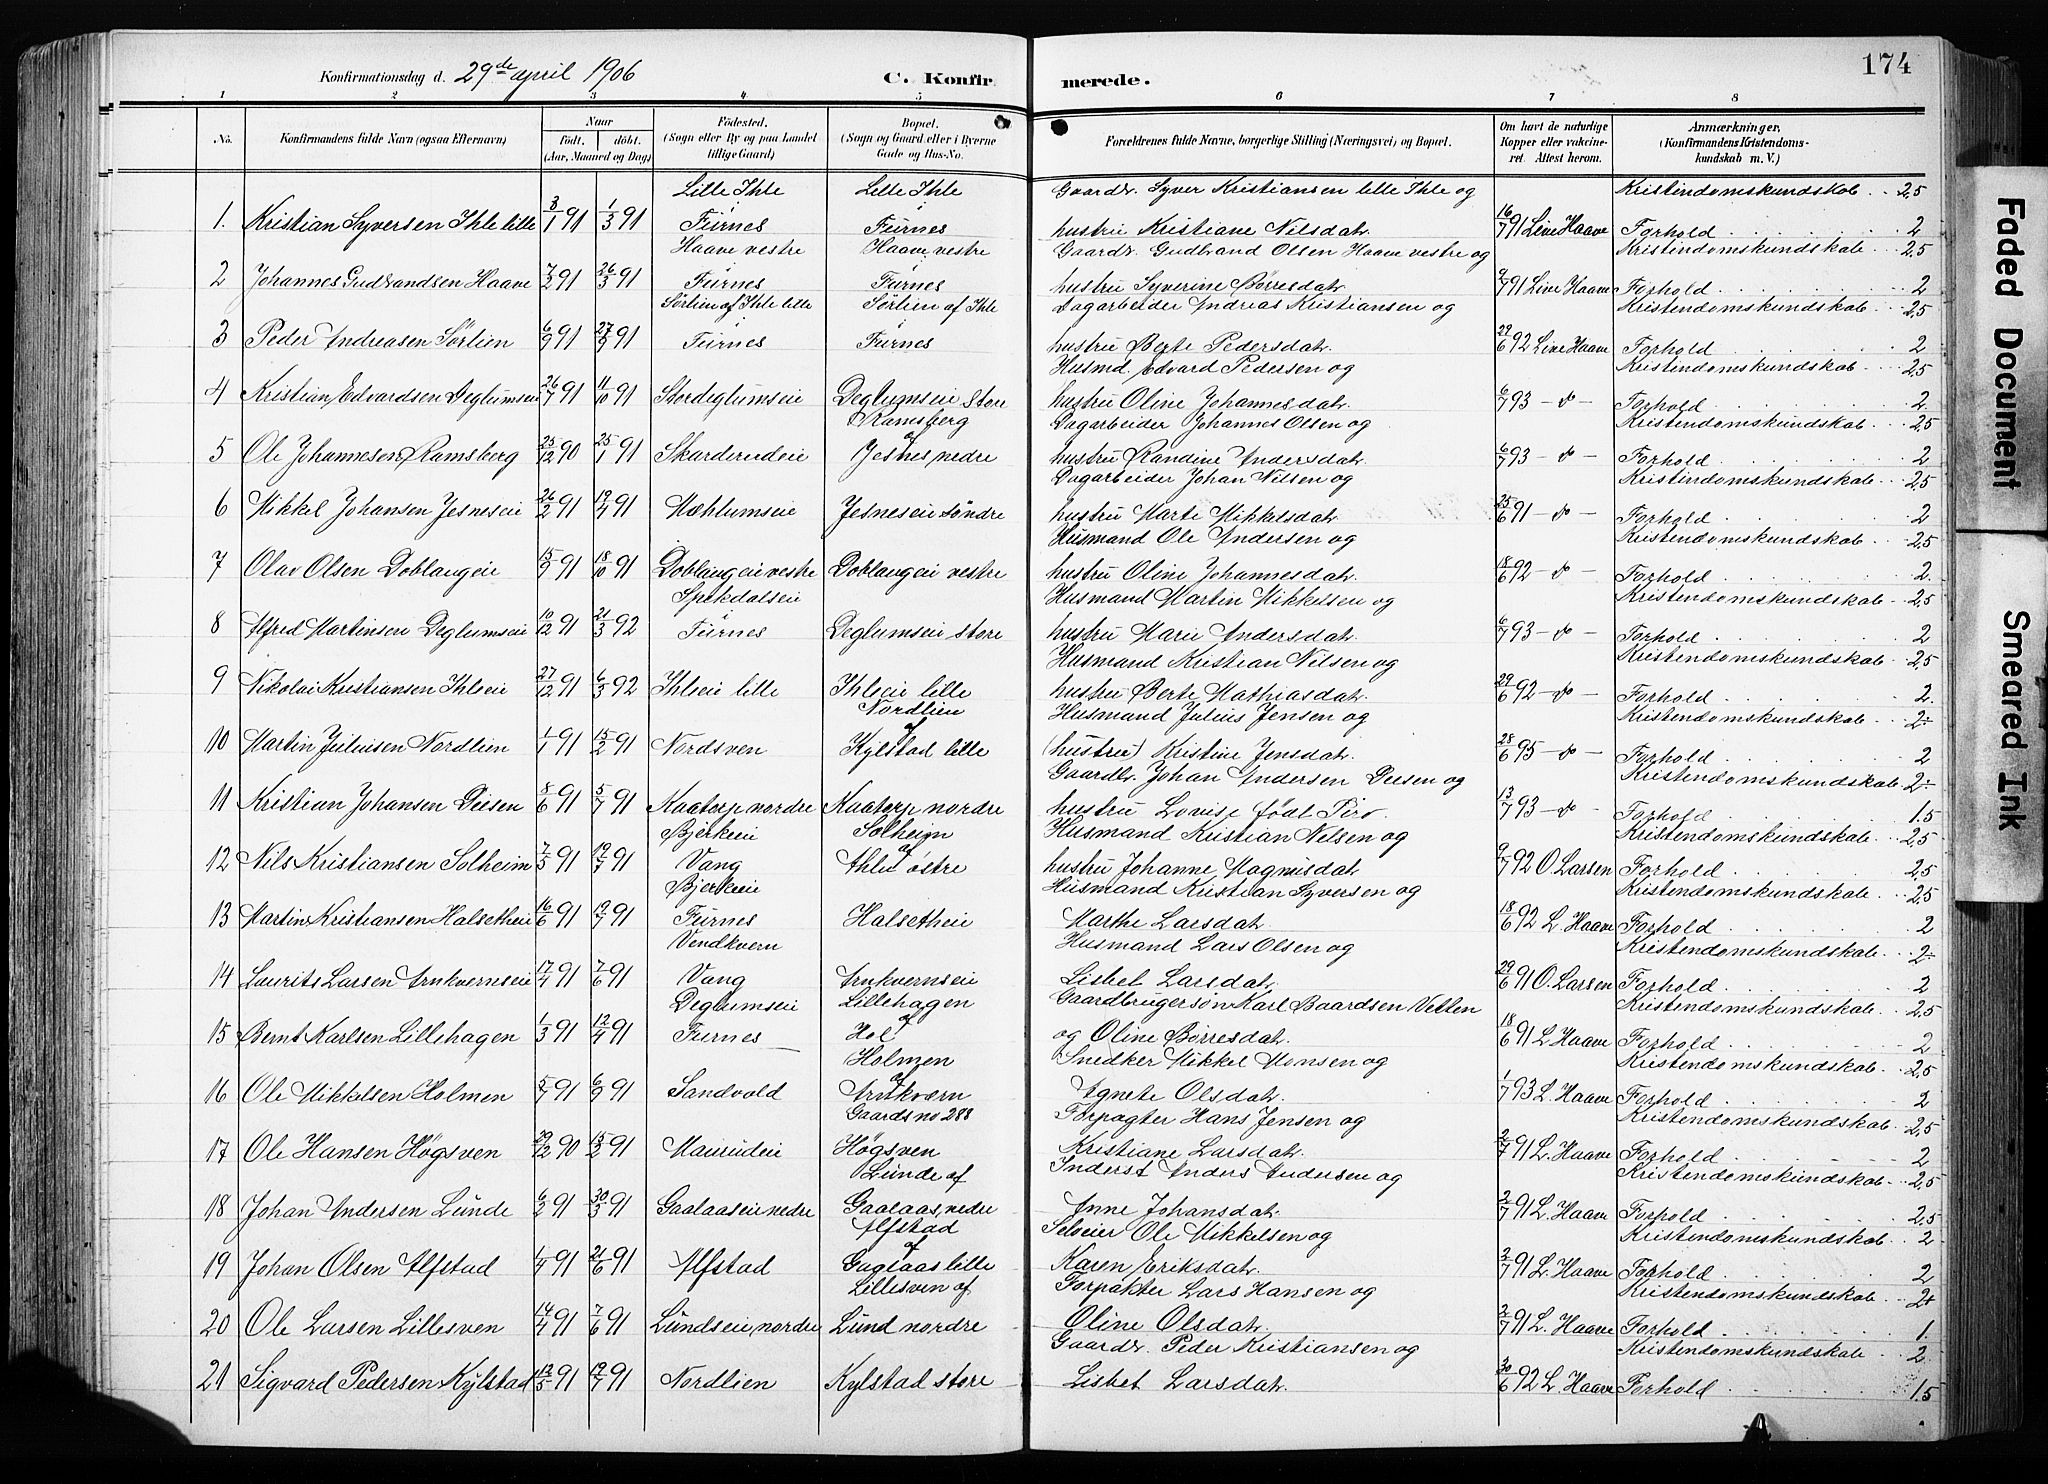 Konfirmationsdag d. 29de april 1906
C. Konfirmerede.
174
1 2 3 4 5 6 7 8
No.
Konfirmandens fulde Navn (ogsaa Efternavn)
Naar
født. døbt.
(Aar, Maaned og Dag)
Fødested.
(Sogn eller By og paa Landet
tillige Gaard)
Bopæl.
(Sogn og Gaard eller i Byerne
Gade og Hus-No.
Forældrenes fulde Navne, borgerlige Stilling (Næringsvei) og Bopæl.
Om havt de naturlige
Kopper eller vakcine-
ret. Attest herom.
Anmærkninger.
(Konfirmandens Kristendoms-
kundskab m. V.)
Lille Ihle Lille Ihle Gaardr. Syver Kristiansen lille Ihle og Kristendomskundskab . . 2,5
1. Kristian Syversen Ihle lille 3/1 91 1/3 91 Furnes Furnes hustru Kristiane Nilsdatr. 16/7 91 Live Haave Forhold . . . 2
Haave vestre Haave vestre Gaardr. Gudbrand Olsen Haave vestre og Kristendomskundskab . . 2,5
2 Johannes Gudbrandsen Haave 7/2 91 26/3 91 Furnes Furnes hustru Syverine Børresdatr. 9/7 91 Live Haave Forhold . . . 2
Sörlien af Ihle lille Sörlien af Ihle Dagarbeider Andreas Kristiansen og Kristendomskundskab . . 2,5
3 Peder Andreasen Sörlien 6/9 91 27/9 91 Furnes Furnes hustru Berte Pedersdatr. 29/6 92 Live Haave Forhold . . . 2
Husmd. Edvard Pedersen og Kristendomskundskab . . 2,5
4 Kristian Edvardsen Deglumseie 26/7 91 11/10 91 Stordeglumseie Deglumseie store hustru Oline Johannesdatr. 6/7 93 - d - Forhold . . . 2
Ramsberg Dagarbeider Johannes Olsen og Kristendomskundskab . . 2,5
5 Ole Johannesen Ramsberg 25/12 90 25/1 91 Skarderudeie af Jesnes nedre hustru Randine Andersdatr. 6/7 93 - d - Forhold . . . 2
Dagarbeider Johan Nilsen og Kristendomskundskab . . 2,5
6 Mikkel Johansen Jesneseie 26/2 91 19/4 91 Mæhlumseie Jesneseie söndre hustru Marte Mikkelsdatr. 25/6 91 - d - Forhold . . . 2
Husmand Ole Andersen og Kristendomskundskab . . 2,5
7 Olav Olsen Doblaugeie 15/9 91 18/10 91 Doblaugeie vestre Doblaugeie vestre hustru Oline Johannesdatr. 18/6 92 - d - Forhold . . . 2
Spikdalseie Husmand Martin Mikkelsen og Kristendomskundskab . . 2,5
8 Alfred Martinsen Deglumseie 10/12 91 21/3 92 Furnes Deglumseie store hustru Marie Andersdatr. 6/7 93 - d - Forhold . . . 2
Husmand Kristian Nilsen og Kristendomskundskab . . 2,5
9 Nikolai Kristiansen Ihleeie 27/12 91 6/3 92 Ihleeie lille Ihleeie lille hustru Berte Mathiasdatr. 29/6 92 - d - Forhold . . . 2
Nordlien Husmand Julius Jensen og Kristendomskundskab . . 2÷
10 Martin Juliusen Nordlien 1/1 91 15/2 91 Nordsven af Kylstad lille (hustru) Kristine Jensdatr. 28/6 95 - d - Forhold . . . 2
Gaardbr. Johan Andersen Diesen og Kristendomskundskab . 2÷
11 Kristian Johansen Diesen 8/6 91 5/7 91 Kaatorp nordre Kaatorp nordre hustru Lovise født Piro 13/7 93 - d - Forhold . . . 1.5
Bjerkeeie Solheim Husmand Kristian Nilsen og Kristendomskundskab . . 2,5
12 Nils Kristiansen Solheim 7/5 91 19/7 91 Vang af østre hustru Johanne Magnusdatr. 9/7 92 O. Larsen Forhold . . . 2,5
Bjerkeeie Husmand Kristian Syversen og Kristendomskundskab . . 2,5
13 Martin Kristiansen Halsetheie 16/6 91 19/7 91 Furnes Halsetheie Marthe Larsdatr. 18/6 92 L. Haave Forhold . . . 2
Vendkvern Husmand Lars Olsen og Kristendomskundskab . . 2÷
14 Laurits Larsen Arnkvernseie 17/4 91 7/6 91 Vang Arnkvernseie Lisbet Larsdatr. 29/6 91 O. Larsen Forhold . . . 2
Deglumseie Lillehagen Gaardbrugersøn Karl Baardsen Vetten Kristendomskundskab . . 2,5
15 Bernt Karlsen Lillehagen 1/3 91 12/4 91 Furnes af Hol og Oline Børresdatr. 18/6 91 L. Haave Forhold . . . 2
Holmen Snedker Mikkel Monsen og Kristendomskundskab . . 2,5
16 Ole Mikkelsen Holmen 5/7 91 6/9 91 Sandvold af Arnkværn Agnete Olsdatr. 1/7 93 L. Haave Forhold . . . 2
Gaards no 288 Forpagter Hans Jensen og Kristendomskundskab . . 2,5
17 Ole Hansen Högsven 29/12 90 15/2 91 Maurudeie Högsven Kristiane Larsdatr. 2/7 91 L. Haave Forhold . . . 2
Lunde af Inderst Anders Andersen og Kristendomskundskab . . 2,5
18 Johan Andersen Lunde 6/2 91 30/3 91 Gaalaaseie nedre Gaalaas nedre Anne Johansdatr. 2/7 91 L. Haave Forhold . . . 2,5
Alfstad Selveier Ole Mikkelsen og Kristendomskundskab . . 2
19 Johan Olsen Alfstad 1/4 91 21/6 91 Alfstad af Gaalaas lille Karen Eriksdatr. 2/7 91 L. Haave Forhold . . . 2
Lillesven af Forpakter Lars Hansen og Kristendomskundskab . . 2+
20 Ole Larsen Lillesven 14/4 91 7/6 91 Lundseie nordre Lund nordre Oline Olsdatr. 2/7 91 L. Haave Forhold . . . 1.
Gaardr. Peder Kristiansen og Kristendomskundskab . . 2
21 Sigvard Pedersen Kylstad 12/5 91 19/7 91 Nordlien Kylstad store Lisbet Larsdatr. 30/6 92 L. Haave Forhold . . . 1.5
Faded Document
Smeared Ink